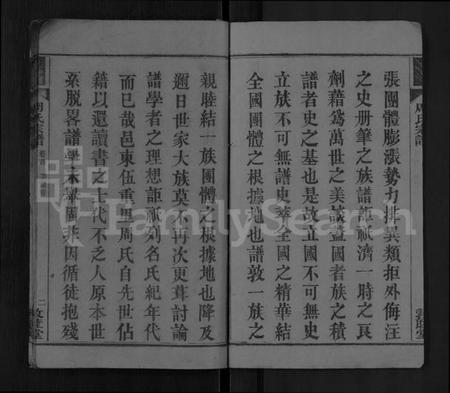 張團體膨漲勢力排異類拒外侮注
之史册筆之族譜詎祇濟一時之良
劑藉爲萬世之美談蓋國者族之積
譜者史之基也是故立國不可無史
立族不可無譜史萃全國之精華結
全國團體之根據地也譜敦一族之
親睦結一族團體之根據地也降及
邇日世家大族莫不再次更茸討論
譜學者之理想詎祇列名氏紀年代
而已哉邑東伍重周氏自先世佔
籍以還讀書之士代不乏人原本世
系脫畧譜學未舉周非因循徒抱殘
周氏宗譜
敦睦堂
FamilySearch